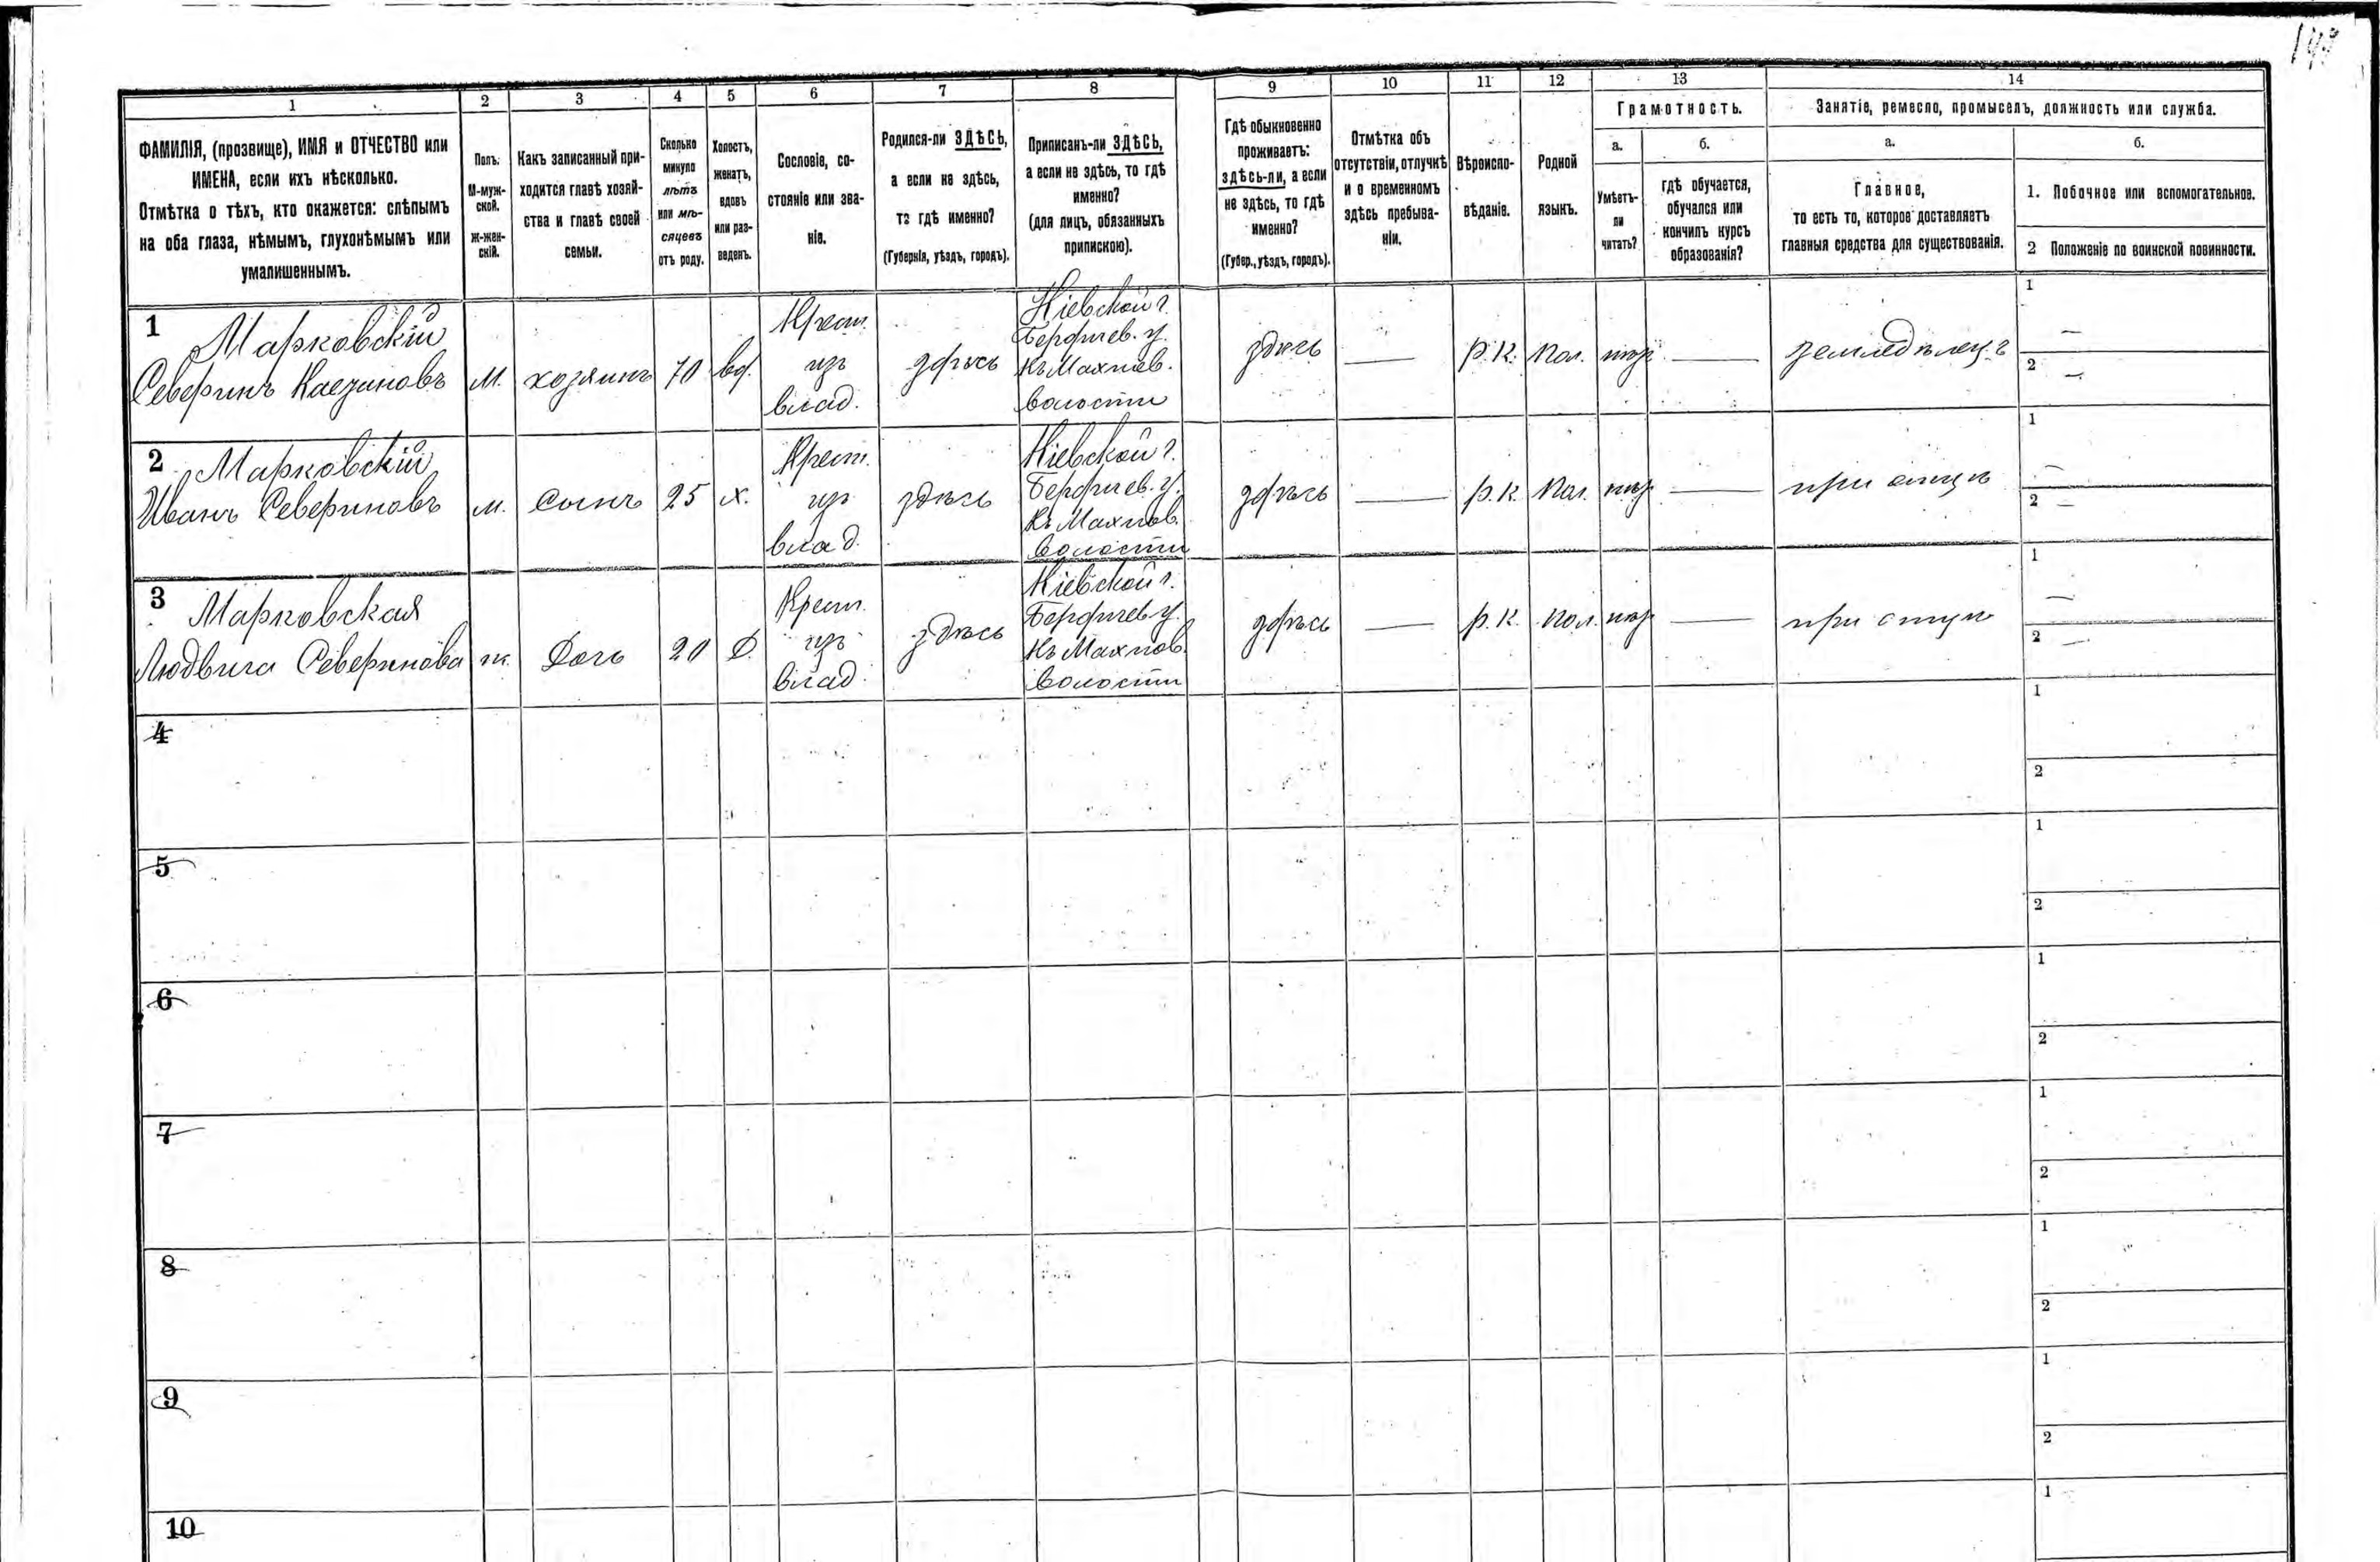 1 2 3 4 5 6 7 8 9 10 11 12 13 14
ФАМИЛІЯ, (прозвище), ИМЯ и ОТЧЕСТВО или
ИМЕНА, если ихъ нѣсколько.
Отмѣтка о тѣхъ, кто окажется: слѣпымъ
на оба глаза, нѣмымъ, глухонѣмымъ или
умалишеннымъ.
Полъ.
М-муж-
ской.
Ж-жен-
скій.
Какъ записанный при-
ходится главѣ хозяй-
ства и главѣ своей
семьи.
Сколько
минуло
лѣтъ
или мѣ-
сяцевъ
отъ роду.
Холостъ,
женатъ,
вдовъ
или раз-
веденъ.
Сословіе, со-
стояніе или зва-
ніе.
Родился-ли ЗДѢСЬ,
а если не здѣсь,
то гдѣ именно?
(Губернія, уѣздъ, городъ).
Приписанъ-ли ЗДѢСЬ,
а если не здѣсь, то гдѣ
именно?
(для лицъ, обязанныхъ
припискою).
Гдѣ обыкновенно
проживаетъ:
здѣсь-ли, а если
не здѣсь, то гдѣ
именно?
(Губер., уѣздъ, городъ).
Отмѣтка объ
отсутствіи, отлучкѣ
и о временномъ
здѣсь пребыва-
ніи.
Вѣроиспо-
вѣданіе.
Родной
языкъ.
Грамотность.
а.
Умѣетъ-
ли
читать?
б.
гдѣ обучается,
обучался или
кончилъ курсъ
образованія?
Занятіе, ремесло, промыселъ, должность или служба.
а.
Главное,
то есть то, которое доставляетъ
главныя средства для существованія.
б.
1. Побочное или вспомогательное.
2 Положеніе по воинской повинности.
1
Марковскій
Северинъ
М.
хозяинъ
70
вд.
Крест.
изъ
влад.
здѣсь
Кіевской г.
Бердичев. у.
Къ Махнов.
волости
здѣсь
—
р. к.
пол.
—
земледѣлец.
1
—
2
—
2
Марковскій
Иванъ Севериновъ
м.
сынъ
25
х.
Крест.
изъ
влад.
здѣсь
Кіевской г.
Бердичев. у.
Къ Махнов.
волости
здѣсь
—
р. к.
пол.
—
при отцѣ
1
—
2
—
3
Марковская
Людвига Северинова
ж.
Дочь
20
Д.
Крест.
изъ
влад.
здѣсь
Кіевской г.
Бердичев у.
Къ Махнов.
волости
здѣсь
—
р. к.
пол.
—
при отцѣ
1
—
2
—
4
1
2
5
1
2
6
1
2
7
1
2
8
1
2
9
1
2
10
1